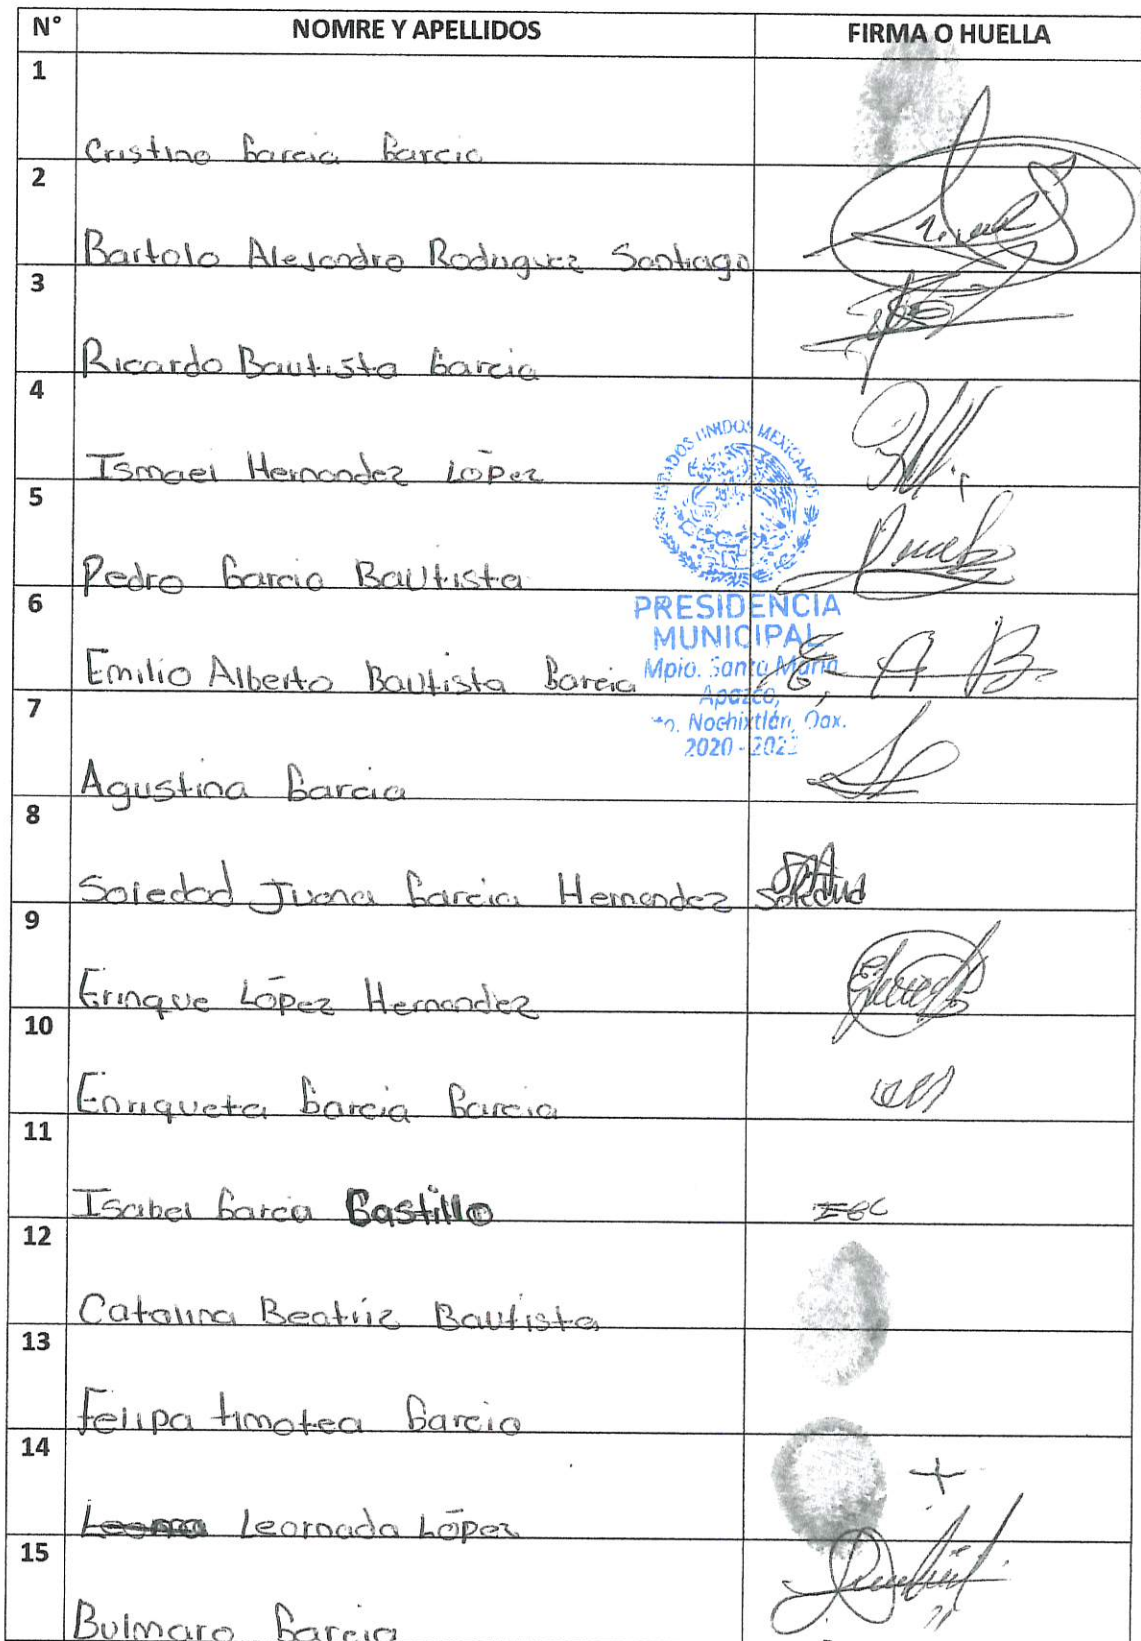 N° NOMRE Y APELLIDOS FIRMA O HUELLA
1 Cristino Garcia Garcia
2 Bartolo Alejandro Rodriguez Santiago
3 Ricardo Bautista Garcia
4 Ismael Hernandez López
5 Pedro Garcia Bautista
6 Emilio Alberto Bautista Garcia E, A B.
7 Agustina Garcia
8 Soledad Juana Garcia Hernandez Soledad
9 Erinque López Hernandez
10 Enriqueta Garcia Garcia
11 Isabel Garcia Castillo IGC
12 Catalina Beatriz Bautista
13 Felipa timotea Garcia
14 Leornada López +
15 Bulmaro Garcia
ESTADOS UNIDOS MEXICANOS
PRESIDENCIA
MUNICIPAL
Mpio. Santa María
Apazco,
Nochixtlán, Oax.
2020 - 2022